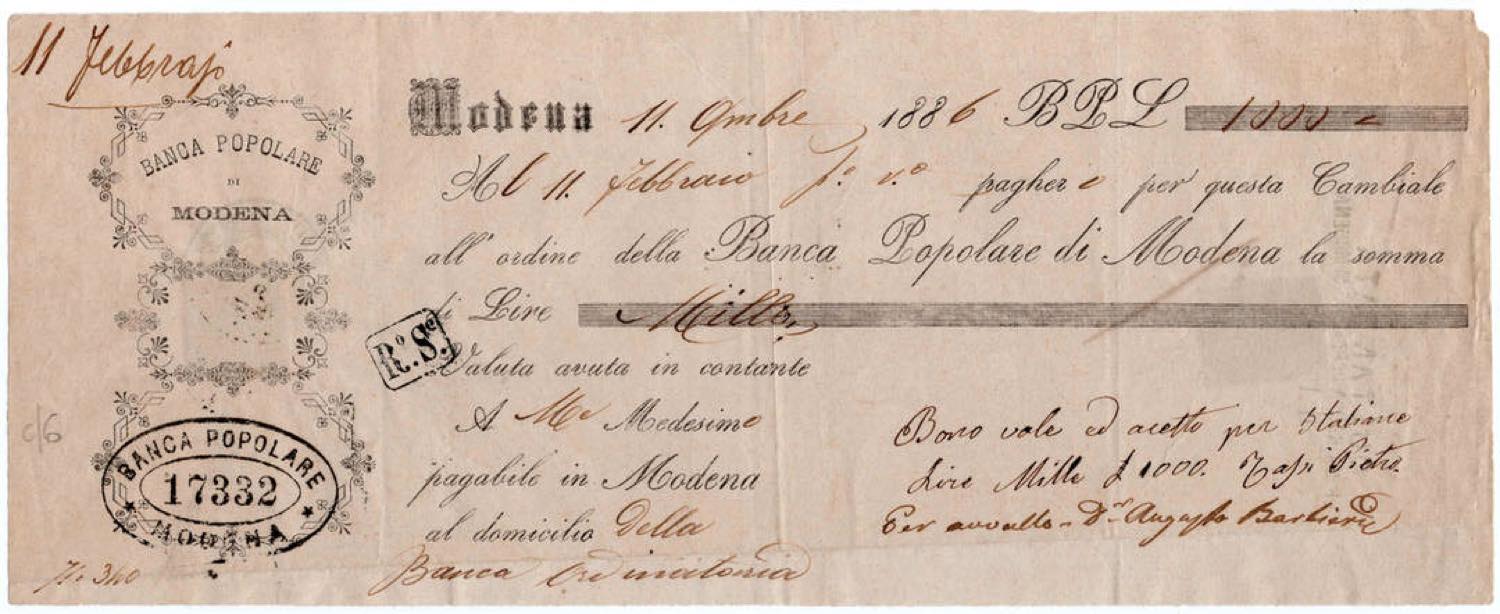 11 Febbrajo
BANCA POPOLARE
DI
MODENA
Modena 11. 9mbre 1886 B.P.L. 1000 =
Al 11. Febbraio p.º v.º pagherò per questa Cambiale
all' ordine della Banca Popolare di Modena la somma
di Lire Mille
Rº. Sº.
Valuta avuta in contante
A Me Medesimo
pagabile in Modena
al domicilio Della
Banca Ordinatoria
Bono vale ed acetto per Italiane
Lire Mille £ 1000. Pietro
Per avvallo = Dr Augusto Barbieri
BANCA POPOLARE
17332
MODENA
c/6